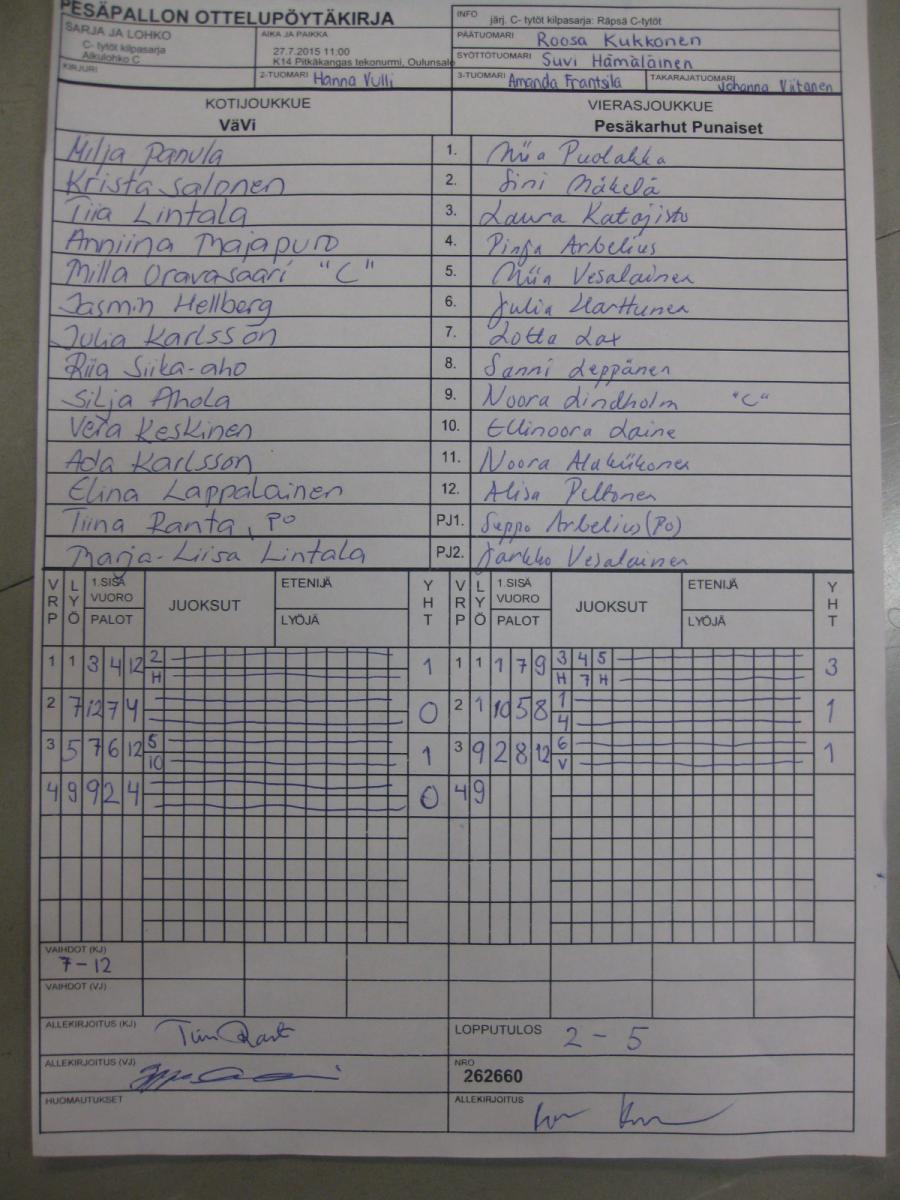 PESÄPALLON OTTELUPÖYTÄKIRJA
INFO järj. C- tytöt kilpasarja: Räpsä C-tytöt
SARJA JA LOHKO
C- tytöt kilpasarja
Alkulohko C
AIKA JA PAIKKA
27.7.2015 11:00
K14 Pitkäkangas tekonurmi, Oulunsalo
PÄÄTUOMARI Roosa Kukkonen
SYÖTTÖTUOMARI Suvi Hämäläinen
KIRJURI
2-TUOMARI Hanna Vulli
3-TUOMARI Amanda Frantsila
TAKARAJATUOMARI Johanna Viitanen
KOTIJOUKKUE VIERASJOUKKUE
VäVi Pesäkarhut Punaiset
Milja Panula 1. Miia Puolakka
Krista Salonen 2. Sini Mäkelä
Tiia Lintala 3. Laura Katajisto
Anniina Majapuro 4. Pinja Arbelius
Milla Oravasaari "C" 5. Miia Vesalainen
Jasmin Hellberg 6. Julia Harttunen
Julia Karlsson 7. Lotta Lax
Riia Siika-aho 8. Sanni Leppänen
Silja Ahola 9. Noora Lindholm "C"
Vera Keskinen 10. Ellinoora Laine
Ada Karlsson 11. Noora Alakiikonen
Elina Lappalainen 12. Alisa Peltonen
Tiina Ranta, PO PJ1. Seppo Arbelius (PO)
Marja-Liisa Lintala PJ2. Jarkko Vesalainen
VRP LYÖ 1.SISÄ VUORO PALOT JUOKSUT ETENIJÄ LYÖJÄ YHT VRP LYÖ 1.SISÄ VUORO PALOT JUOKSUT ETENIJÄ LYÖJÄ YHT
1 1 3 4 12 2 1 1 1 1 7 9 3 4 5 3
H H 7 H
2 7 12 7 4 0 2 1 10 5 8 1 1
4
3 5 7 6 12 5 1 3 9 2 8 12 6 1
10 V
4 9 9 2 4 0 4 9
VAIHDOT (KJ)
7-12
VAIHDOT (VJ)
ALLEKIRJOITUS (KJ)
LOPPUTULOS 2 - 5
ALLEKIRJOITUS (VJ)
NRO
262660
HUOMAUTUKSET
ALLEKIRJOITUS